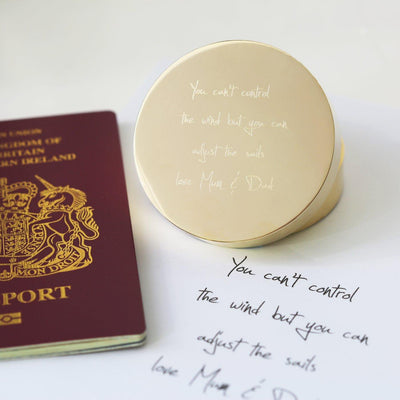 You can't control
the wind but you can
adjust the sails
love Mum & Dad
N UNION
NGDOM OF
BRITAIN
ERN IRELAND
MON DROIT
SPORT
You can't control
the wind but you can
adjust the sails
love Mum & Dad